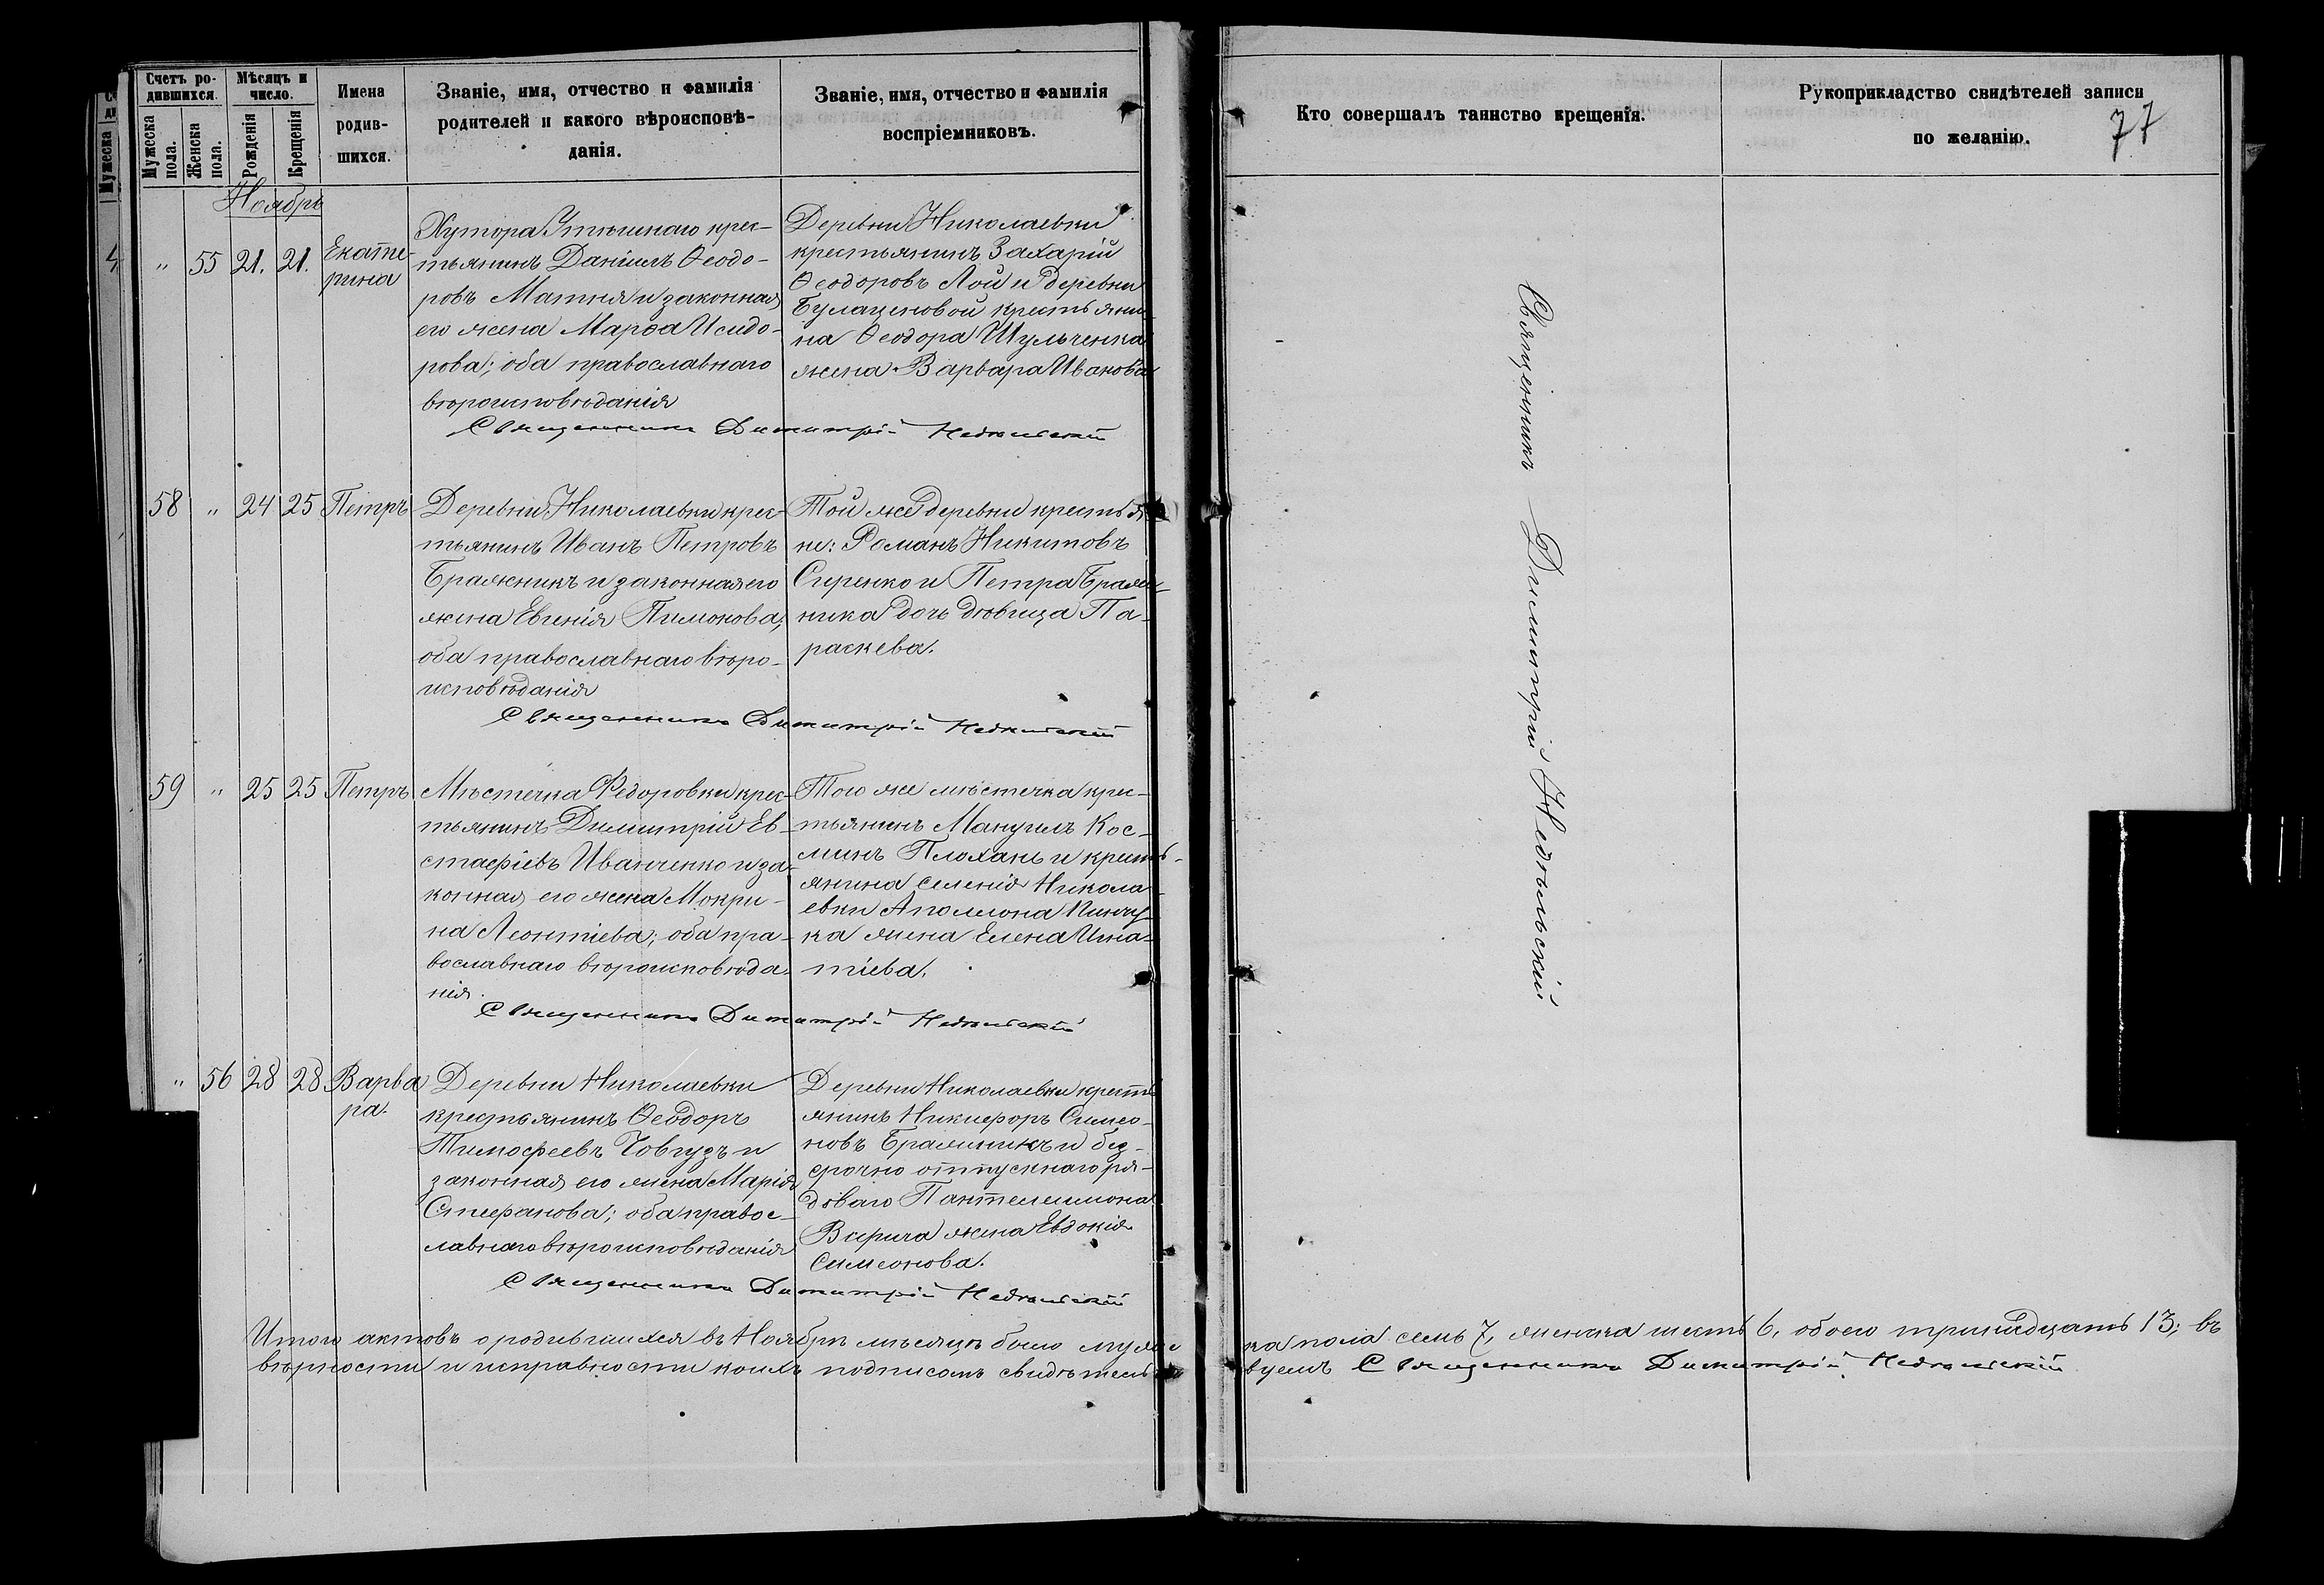 Счетъ ро-
дившихся.
Мѣсяцъ и
число.
Мужеска
пола.
Женска
пола.
Рожденія
Крещенія
Имена
родив-
шихся.
Званіе, имя, отчество и фамилія
родителей и какого вѣроисповѣ-
данія.
Званіе, имя, отчество и фамилія
воспріемниковъ.
Кто совершалъ таинство крещенія.
Рукоприкладство свидѣтелей записи
по желанію.
77
Мужеска
Ноябрь
" 55 21. 21.
Екате-
рина
Хутора крес-
тьянинъ Даніилъ Ѳеодо-
ровъ Матня и законная
его жена Марѳа Исидо-
рова; оба православнаго
вѣроисповѣданія
Деревни Николаевки
крестьянинъ Захарій
Ѳеодоровъ Лой и деревни
Булаценовой крестьяни-
на Ѳеодора Шульченка
жена Варвара Иванова
Священникъ Димитрій Недѣльскій
58 " 24 25 Петръ
Деревни Николаевки крес-
тьянинъ Иванъ Петровъ
Бражникъ и законная его
жена Евгенія Пимонова;
оба православнаго вѣро-
исповѣданія
Той же деревни крестья-
не: Романъ Никитовъ
Сиренко и Петра Браж-
ника дочь дѣвица Па-
раскева.
Священникъ Димитрій Недѣльскій
59 " 25 25 Петръ
Мѣстечка Федоровки крес-
тьянинъ Димитрій Ев-
стафіевъ Иванченко и за-
конная его жена Мокри-
на Леонтіева; оба пра-
вославнаго вѣроисповѣда-
нія.
Того же мѣстечка крес-
тьянинъ Мануилъ Кос-
минъ Плохань и кресть-
янина селенія Никола-
евки Аполлона Пинчу-
ка жена Елена Игна-
тіева.
Священникъ Димитрій Недѣльскій
" 56 28 28
Варва
ра.
Деревни Николаевки
крестьянинъ Ѳеодоръ
Тимофеевъ Човгузъ и
законная его жена Марія
Стефанова; оба правос-
лавнаго вѣроисповѣданія
Деревни Николаевки кресть-
янинъ Никифоръ Симео-
новъ Бражникъ и без-
срочно отпускнаго ря-
доваго Пантелеимона
жена Евдокія
Симеонова.
Священникъ Димитрій Недѣльскій
Священникъ Димитрій Недѣльскій
Итого актовъ о родившихся въ Ноябрѣ мѣсяцѣ было мужес-ка пола семь 7, женска шесть 6, обоего тринадцать 13; въ
вѣрности и исправности коихъ подписомъ свидѣтельст-вуемъ Священникъ Димитрій Недѣльскій